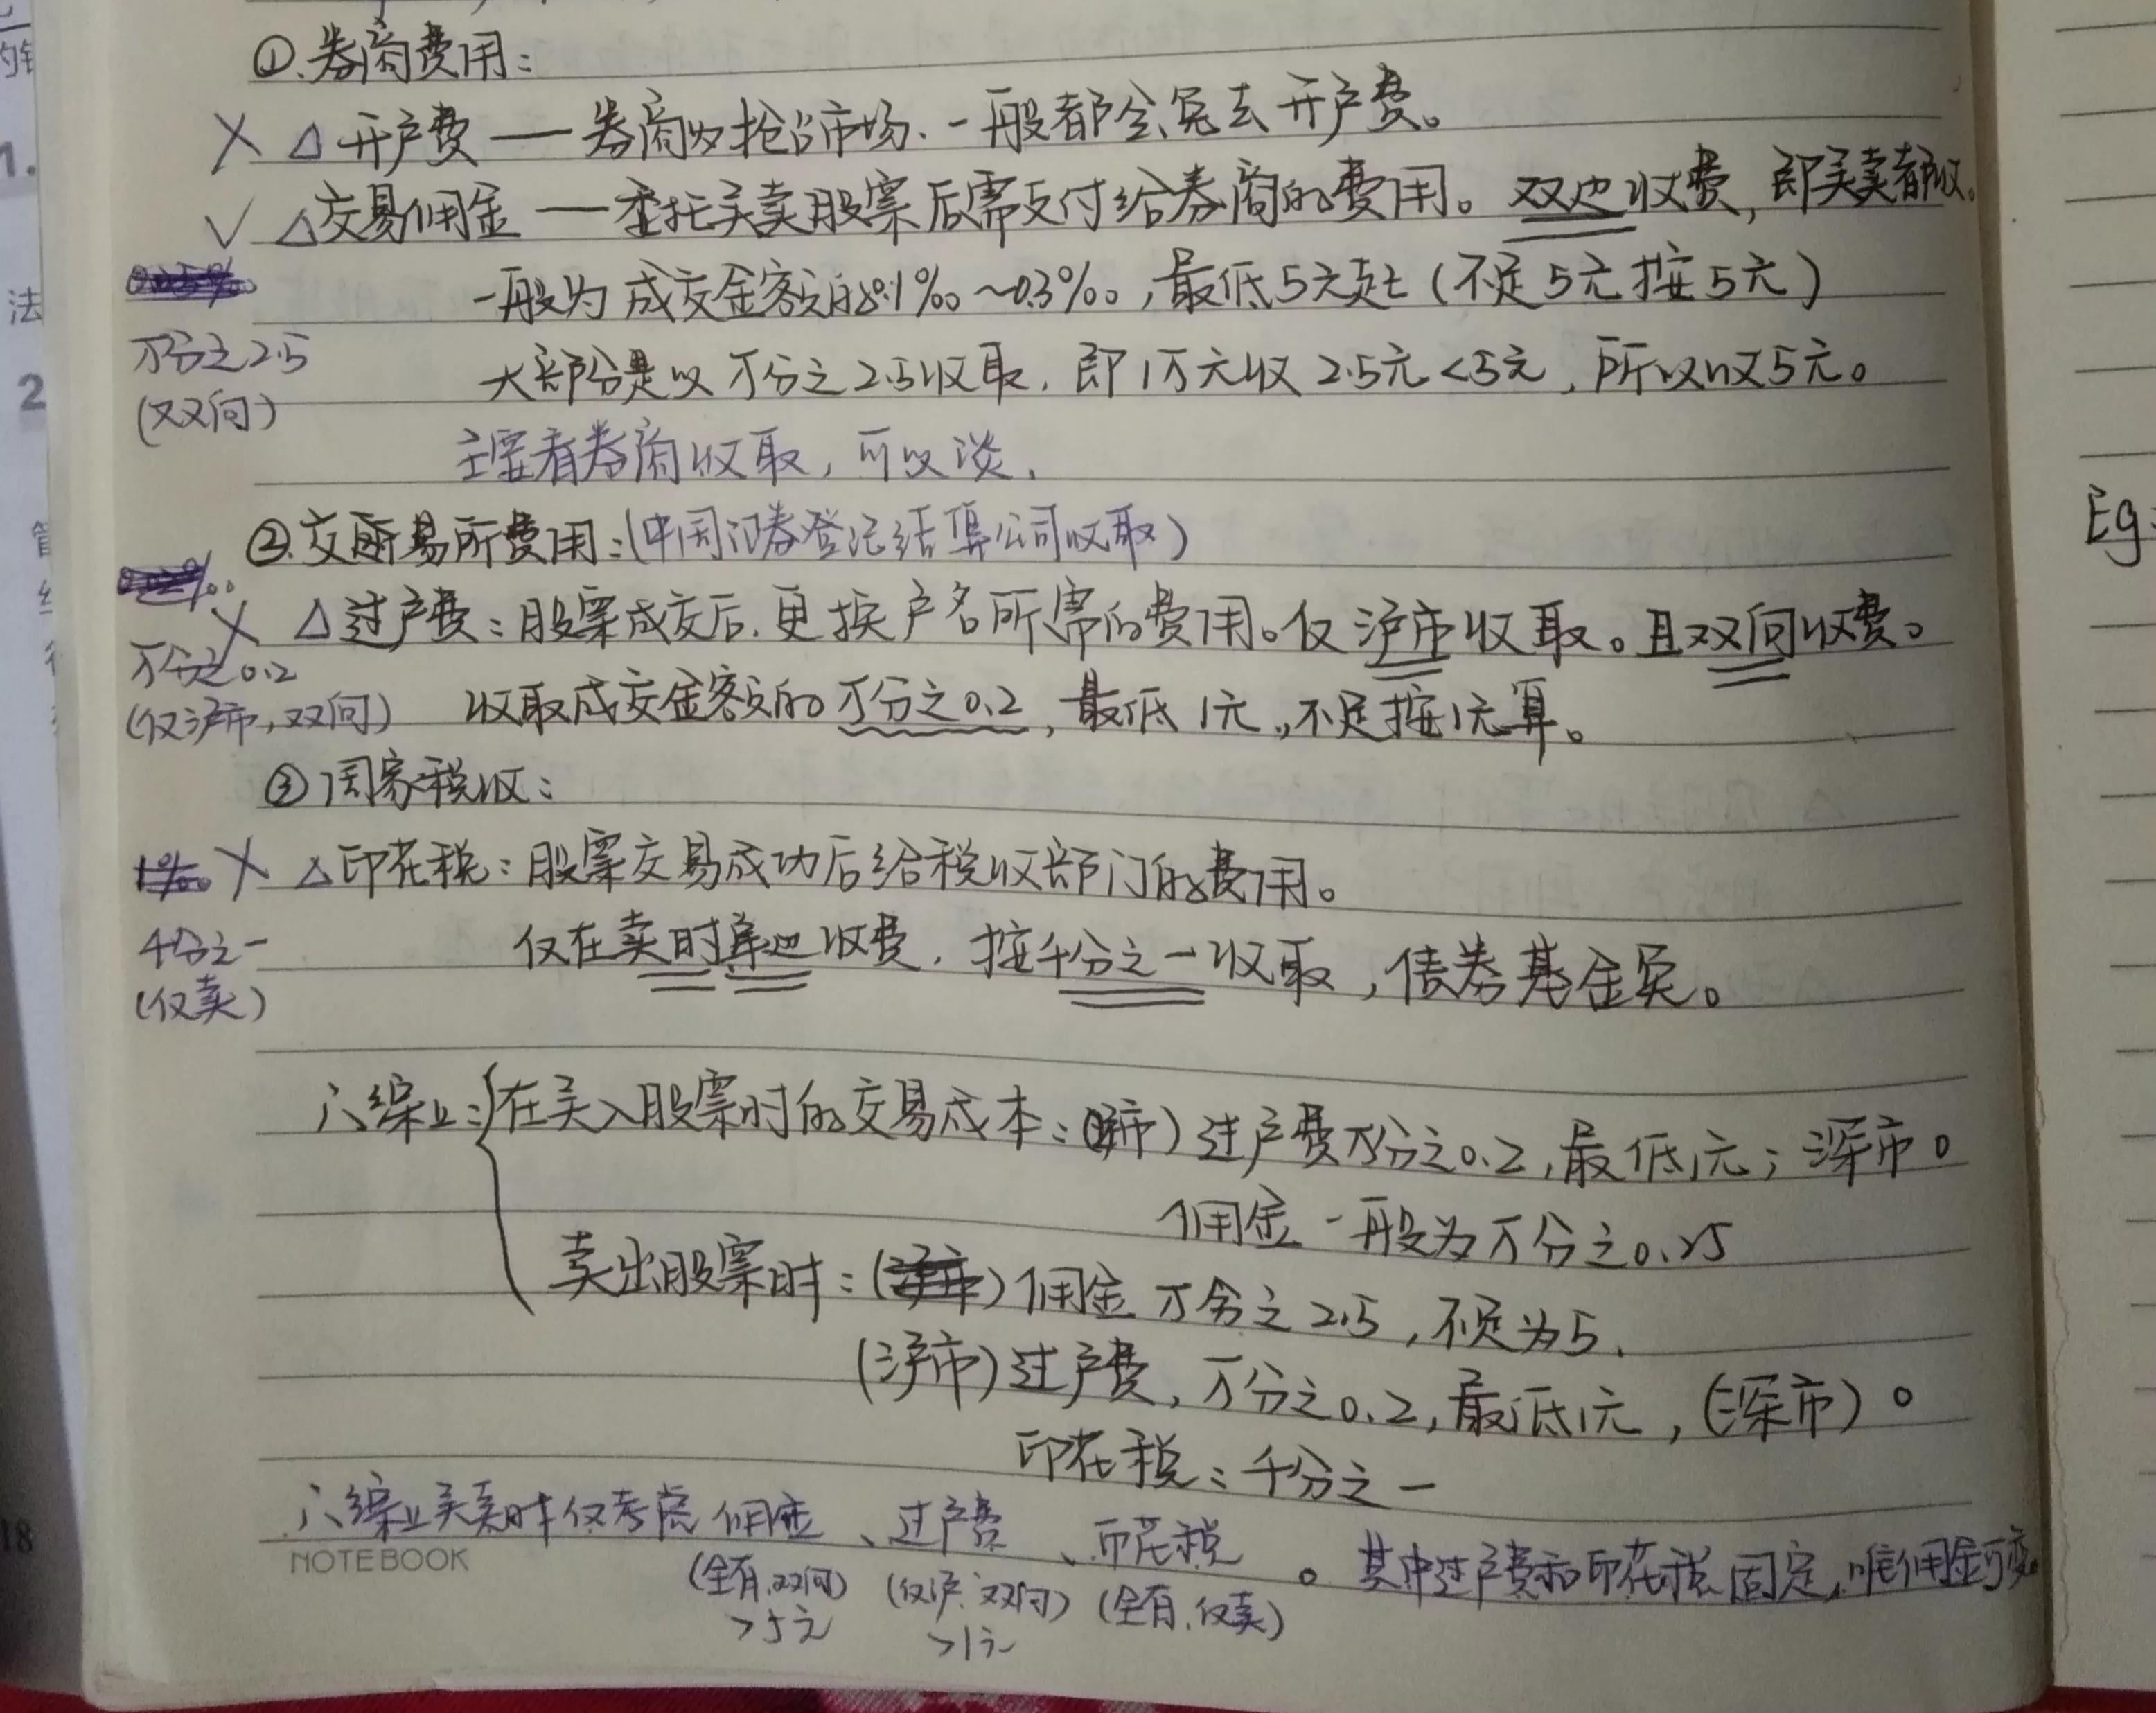 ①.券商费用:
× △ 开户费 — 券商为抢占市场.一般都会免去开户费。
√ △交易佣金 — 委托买卖股票后需支付给券商的费用。双边收费,即买卖都收。
一般为成交金额的0.1‰~0.3‰,最低5元起(不足5元按5元)
万分之2.5
大部分是以万分之2.5收取.即1万元收2.5元<5元,所以收5元。
(双向)
主要看券商收取,可以谈.
②.交易所费用:(中国证券登记结算公司收取)
× △过户费:股票成交后.更换户名所需的费用。仅沪市收取。且双向收费。
万分之0.2
(仅沪市,双向) 收取成交金额的万分之0.2,最低1元,不足按1元算。
③国家税收:
1‰ × △印花税:股票交易成功后给税收部门的费用。
千分之一 仅在卖时单边收费.按千分之一收取,债券基金免。
(仅卖)
∴综上:在买入股票时的交易成本:(沪市)过户费万分之0.2,最低1元;深市0
佣金一般为万分之0.25
卖出股票时:(沪市)佣金万分之2.5,不足为5.
(沪市)过户费,万分之0.2,最低1元,(深市)0
印花税:千分之一
∴综上买卖时仅考虑佣金、过户费、印花税。其中过户费和印花税固定,唯佣金可变。
NOTEBOOK
(全有.双向) (仅沪.双向) (全有.仅卖)
>5元 >1元
Eg:
1.
法
2
18